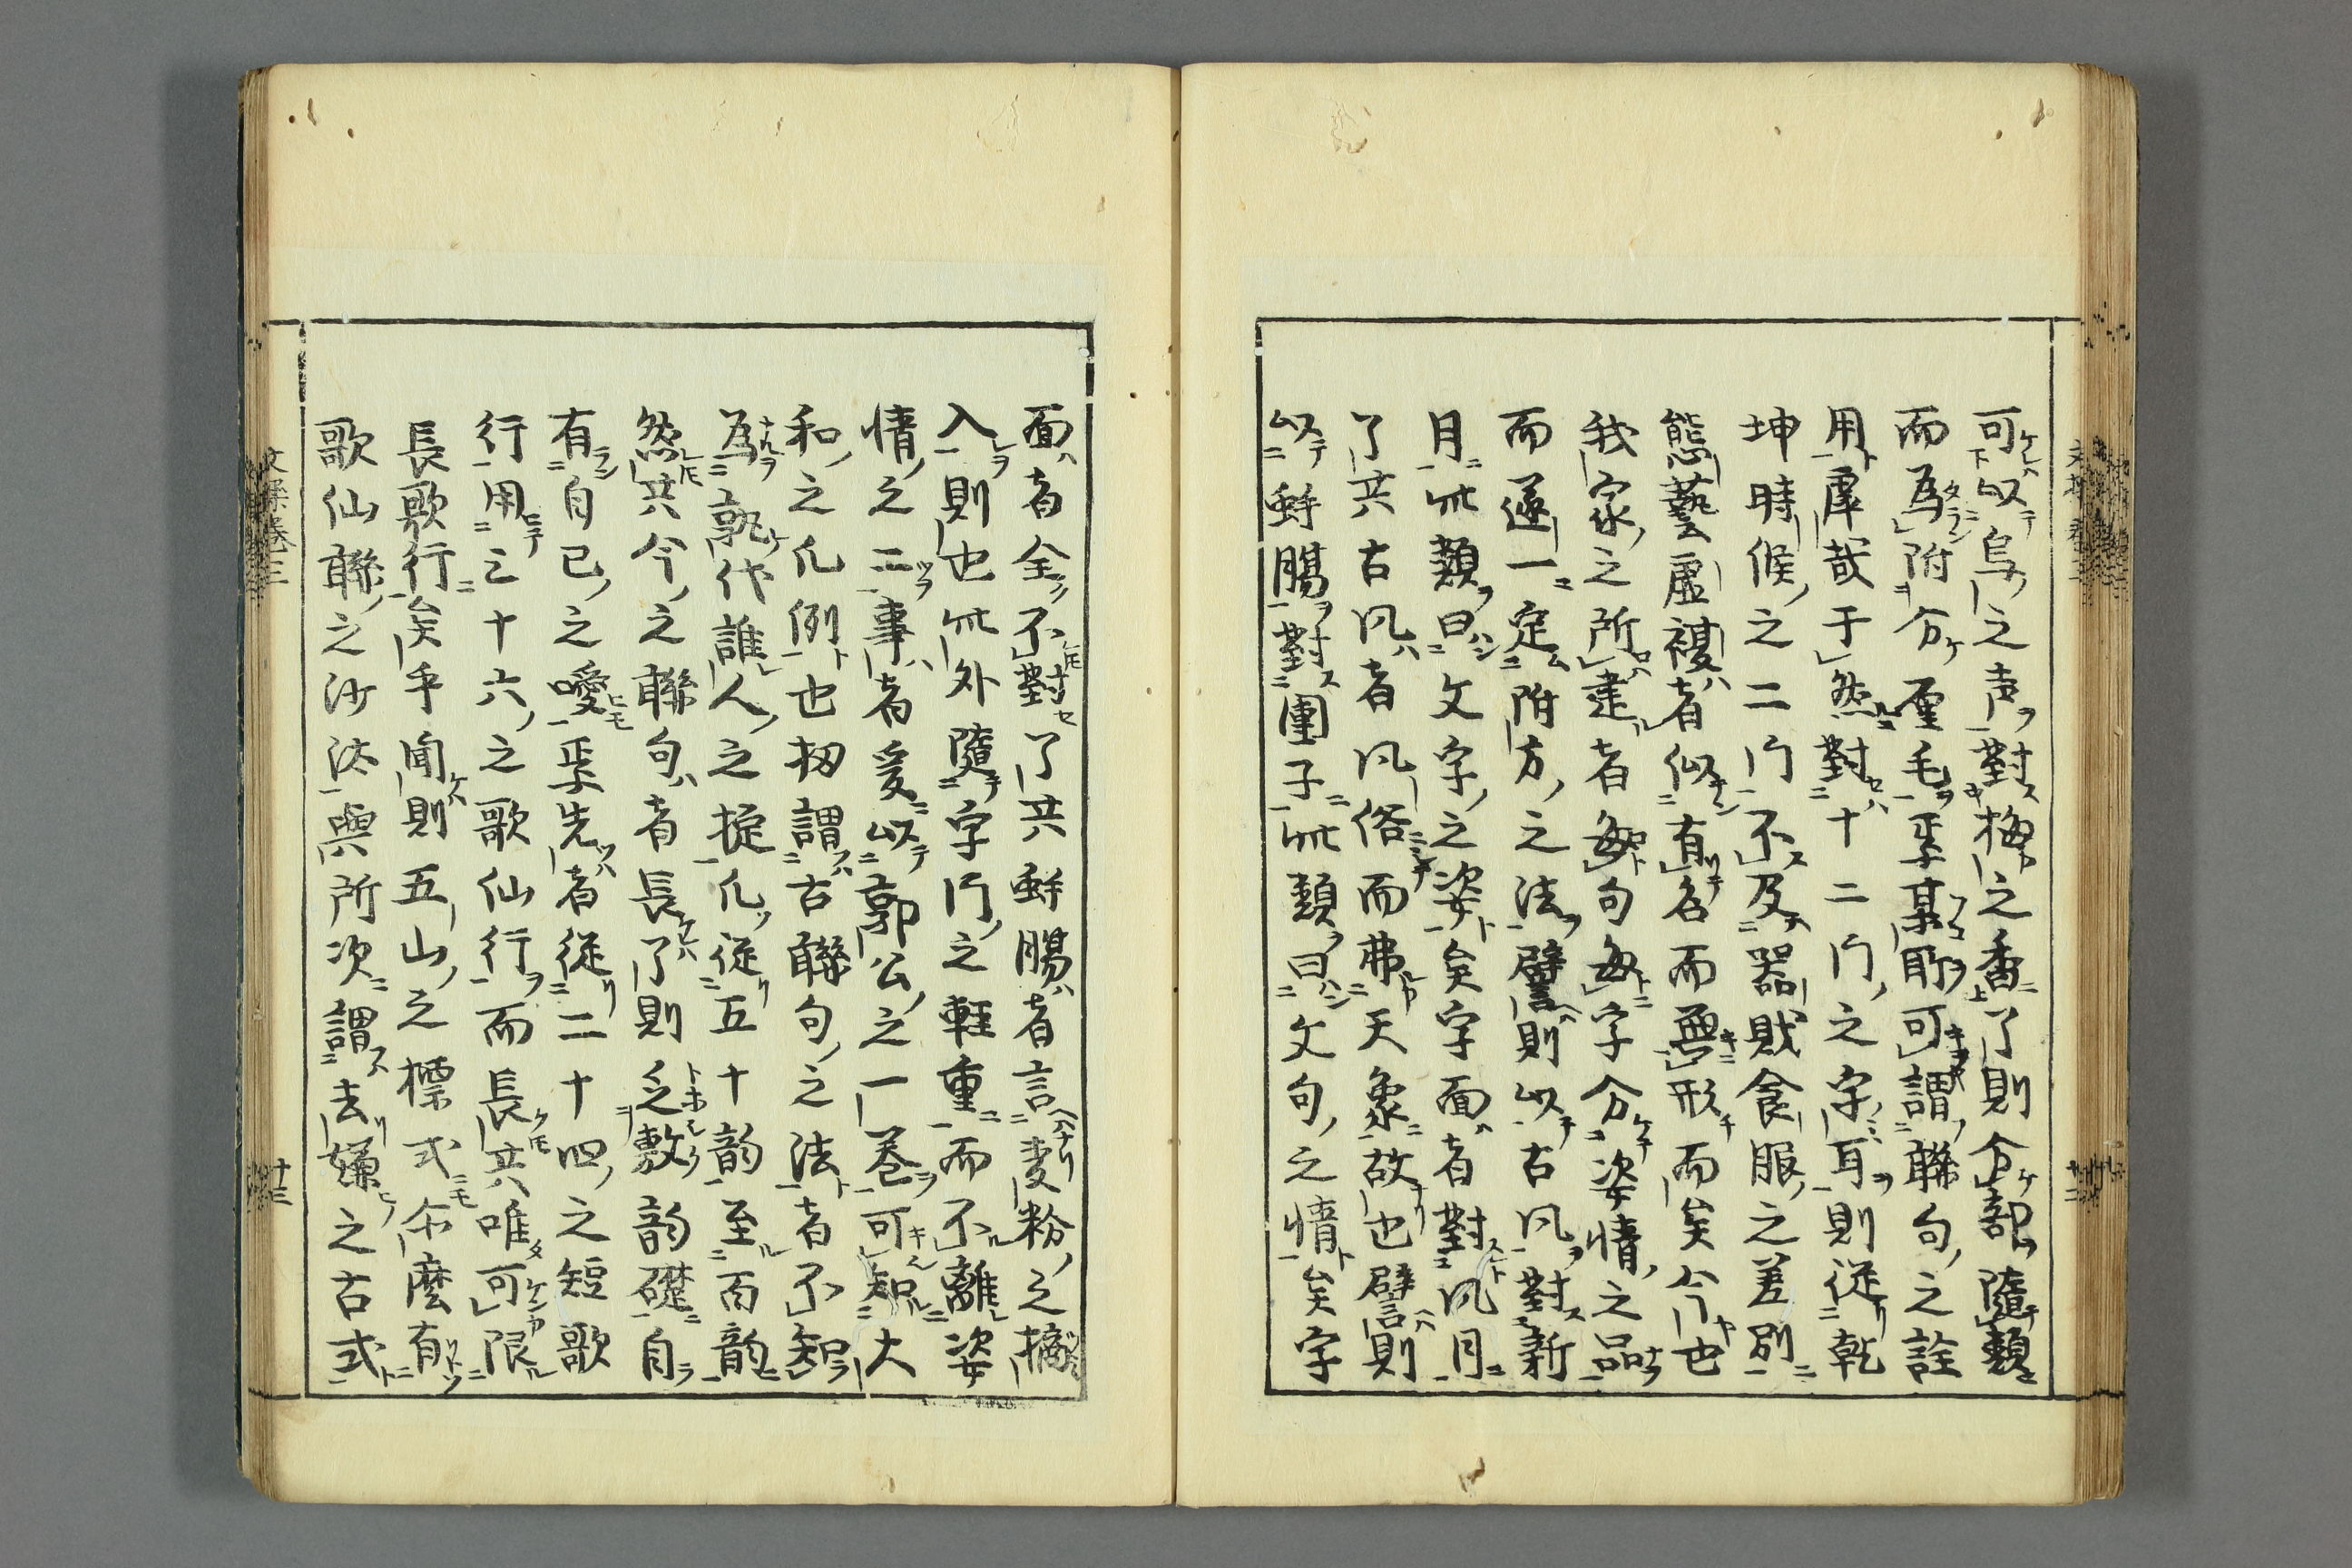 可以烏之声對梅之香了則分韻隨類
而為附分厘毛乎某耶可謂聯句之詮
用庫哉于然對十二门之字耳則從乾
坤時候之二门不及器財食服之差別
態藝虛複者似有名而無形而矣今也
我家之所建者每句每字分姿情之品
而遂一定附方之法譬則以古凤對新
月此類曰文字之姿矣字面者對凤月
了共古凤者凤俗而弗天象故也譬則
以蚌腸對團子此類曰文句之情矣字
面者全不對了共蚌腸者言麦粉之摘
入則也此外隨字门之軽重而不離姿
情之二事者爰以郭公之一卷可知大
和之凡例也扨謂古聯句之法者不知
為孰代誰人之掟凡從五十韵至百韵
然共今之聯句者長了則之敷韵礎自
有自已之噯乎先者從二十四之短歌
行用三十六之歌仙行而長共唯可限
長歌行矣乎聞則五山之標式尒麼有
歌仙聯之沙汰與所次謂法嫌之古式